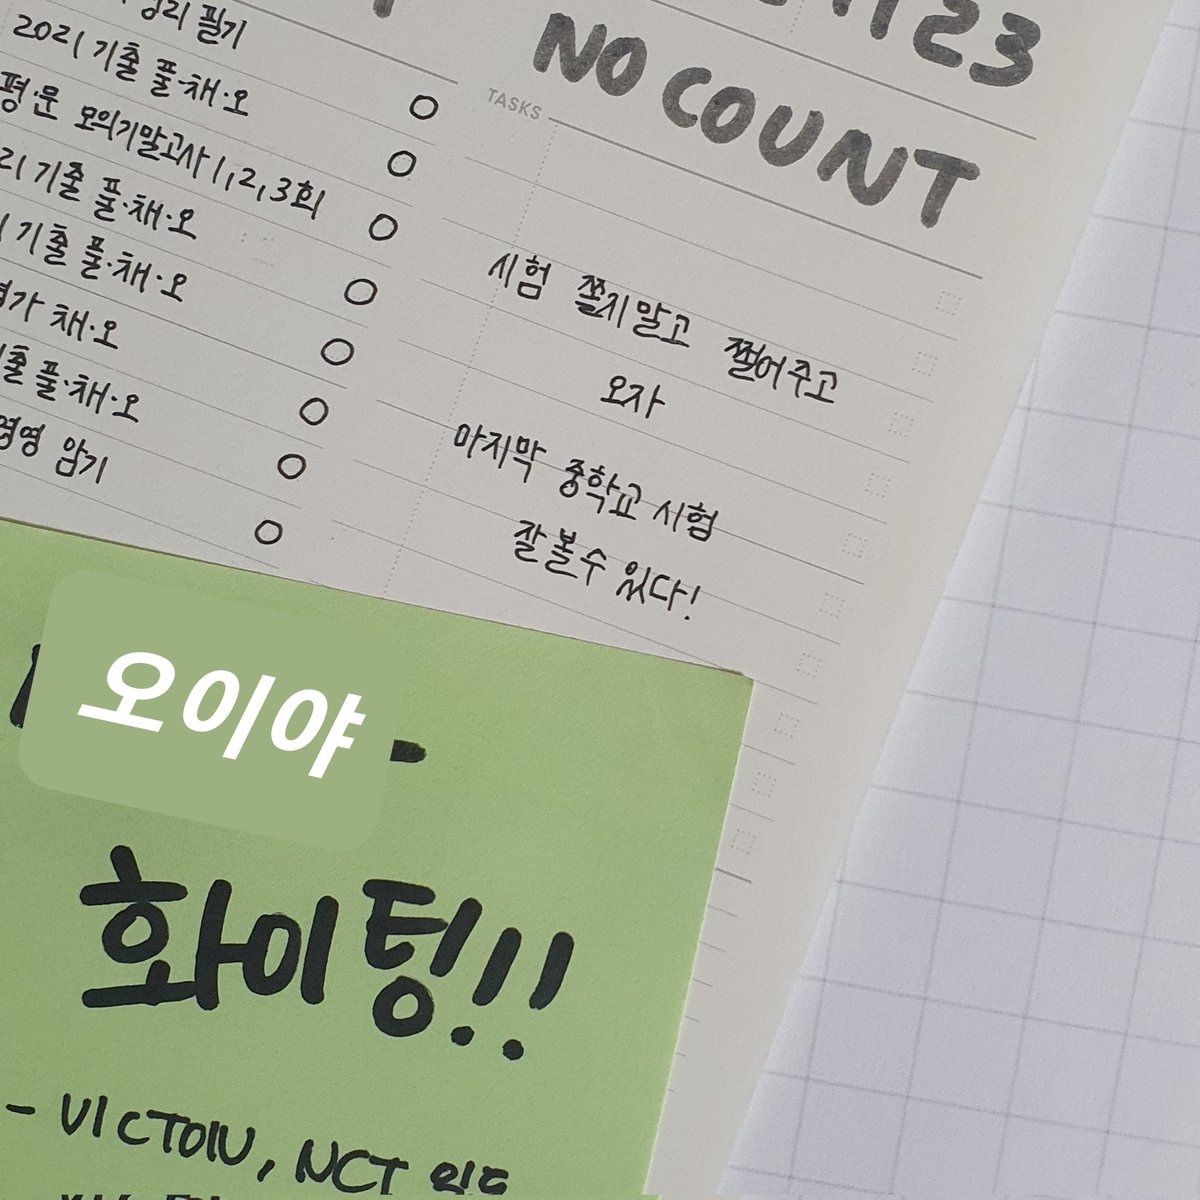 필기
2021 기출 풀·채·오
평·문 모의기말고사 1,2,3회
기출 풀·채·오
기출 풀·채·오
채·오
풀·채·오
암기
23
NO COUNT
TASKS
시험 쫄지말고 쩔어주고
오자
마지막 중학교 시험
잘볼수 있다!
오이야
화이팅!!
- VICTON, NCT